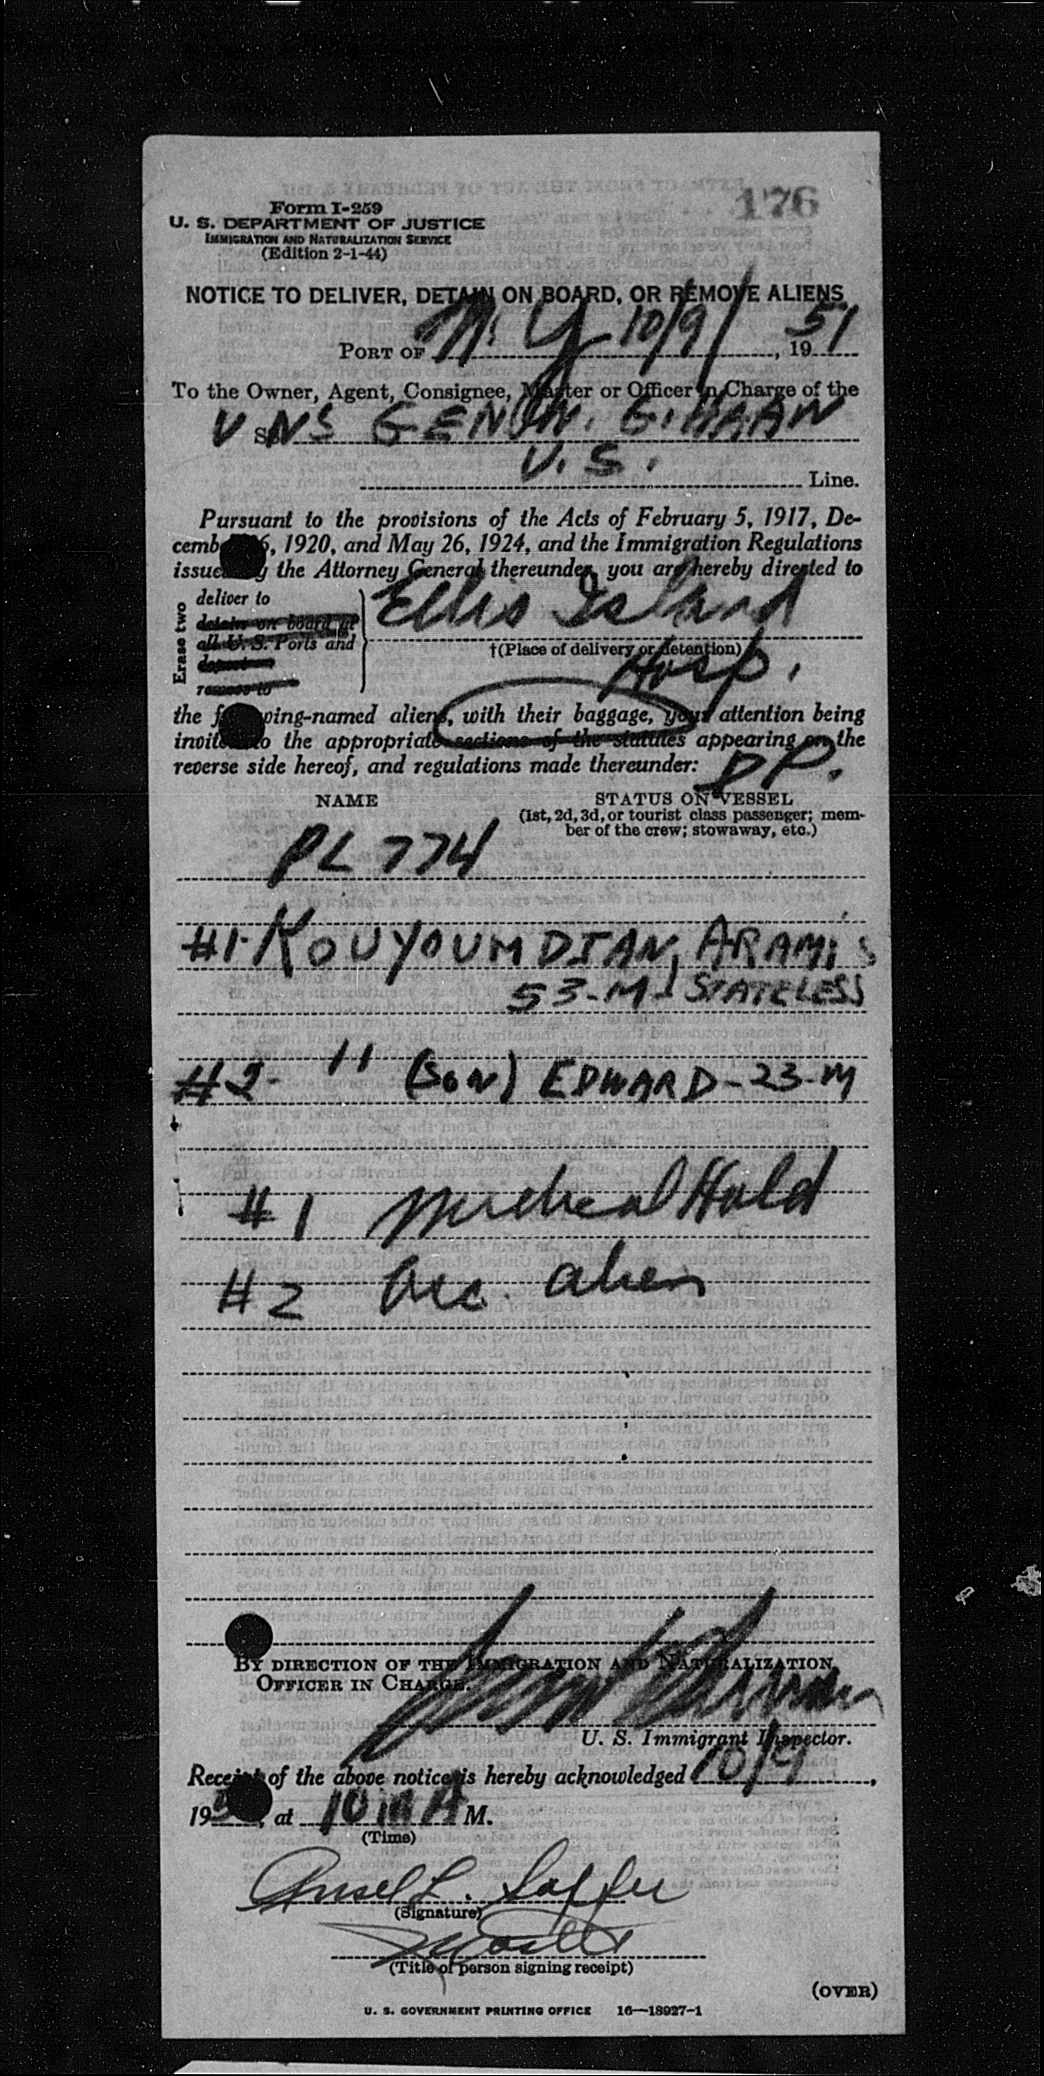 176
Form I-259
U. S. DEPARTMENT OF JUSTICE
IMMIGRATION AND NATURALIZATION SERVICE
(Edition 2-1-44)
NOTICE TO DELIVER, DETAIN ON BOARD, OR REMOVE ALIENS
PORT OF N. Y 10/9/, 1951
To the Owner, Agent, Consignee, Master or Officer in Charge of the
USNS GEN. W. G. HAAN
U. S. Line.
Pursuant to the provisions of the Acts of February 5, 1917, De-
cember 26, 1920, and May 26, 1924, and the Immigration Regulations
issued by the Attorney General thereunder, you are hereby directed to
Erase two
deliver to
detain on board at
all U. S. Ports and
deport
remove to
Ellis Island
†(Place of delivery or detention)
Hosp.
the following-named aliens, with their baggage, your attention being
invited to the appropriate sections of the statutes appearing on the
reverse side hereof, and regulations made thereunder:
DP.
NAME STATUS ON VESSEL
(1st, 2d, 3d, or tourist class passenger; mem-
ber of the crew; stowaway, etc.)
PL 774
#1- KOUYOUMDJIAN, ARAMIS
53-M- STATELESS
#2- " (SON) EDWARD-23-M
#1 Medical Hold
#2 Acc. alien
BY DIRECTION OF THE IMMIGRATION AND NATURALIZATION
OFFICER IN CHARGE.
U. S. Immigrant Inspector.
Receipt of the above notice is hereby acknowledged 10/9,
195, at 10 A M.
(Time)
Ansel L.
(Signature)
(Title of person signing receipt)
(OVER)
U. S. GOVERNMENT PRINTING OFFICE 16—18927-1